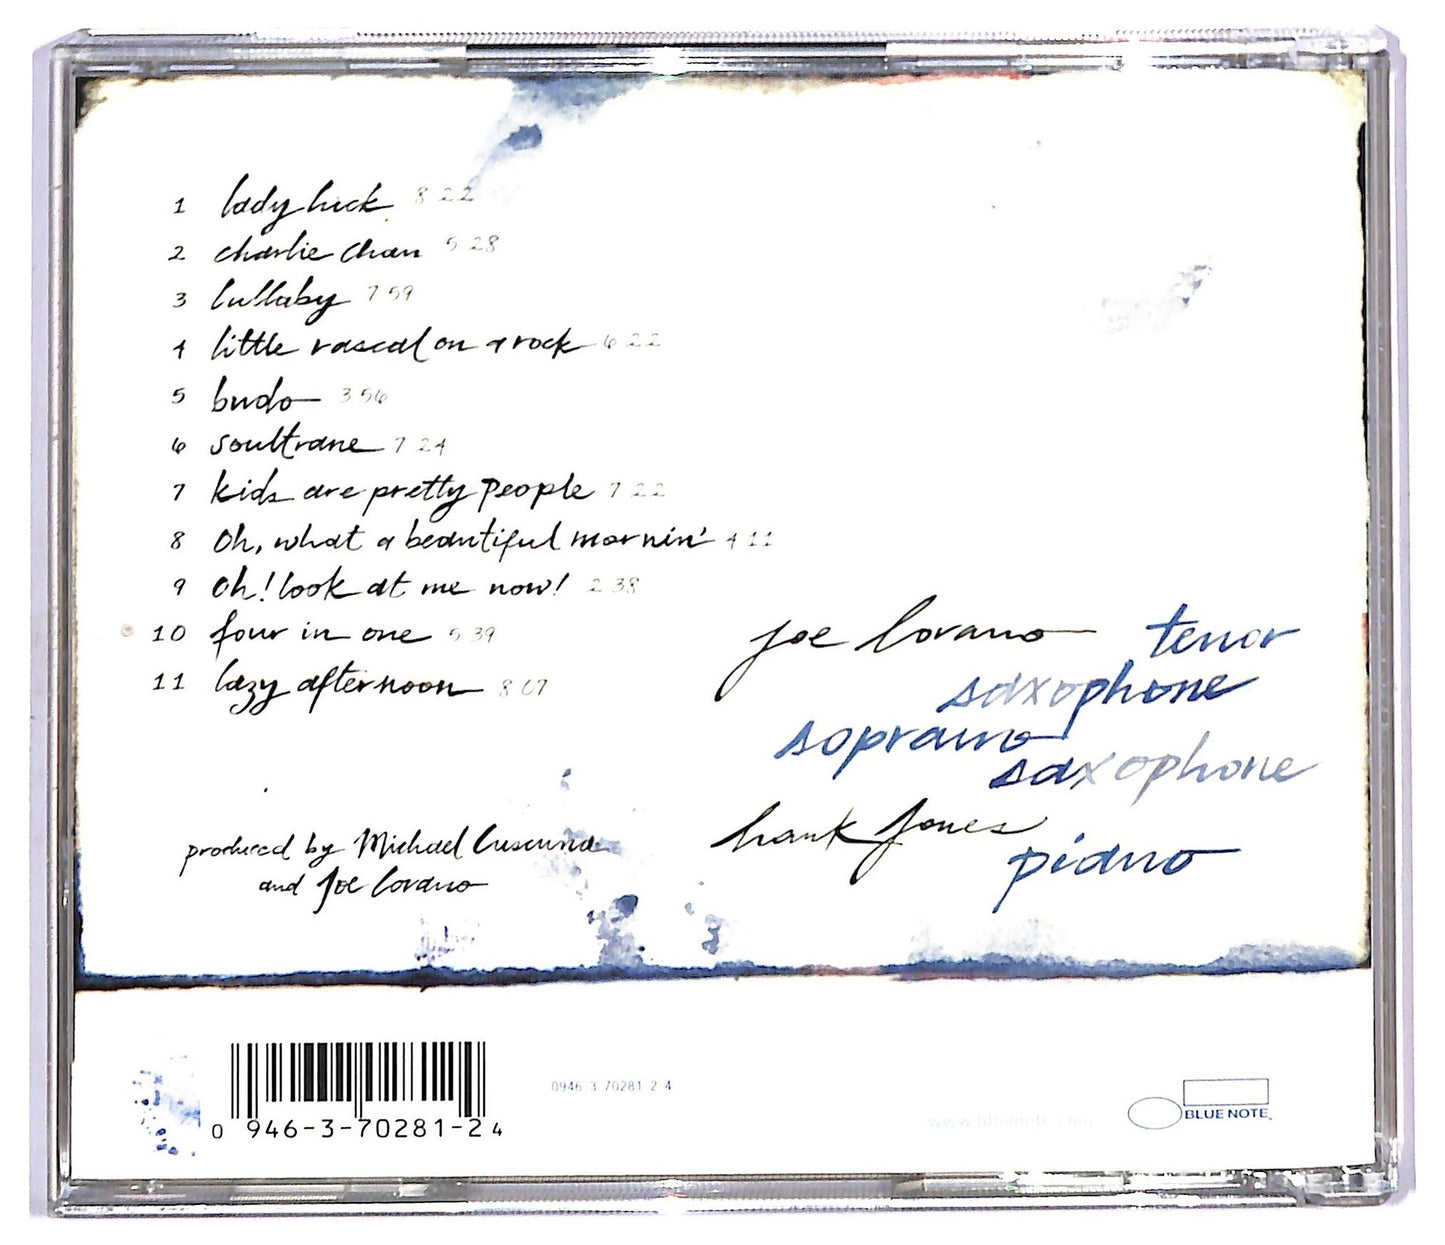 1 lady luck 8 22
2 charlie chan 5 28
3 lullaby 7 59
4 little rascal on a rock 6 22
5 budo 3 56
6 soultrane 7 24
7 kids are pretty people 7 22
8 Oh, what a beautiful mornin' 4 11
9 Oh! look at me now! 2 38
10 four in one 5 39
11 lazy afternoon 8 07
joe lovano tenor
saxophone
soprano
saxophone
hank jones
piano
produced by Michael Cuscuna
and Joe Lovano
0 946-3-70281-2 4
0946 3 70281 2 4
www.bluenote.com
BLUE NOTE